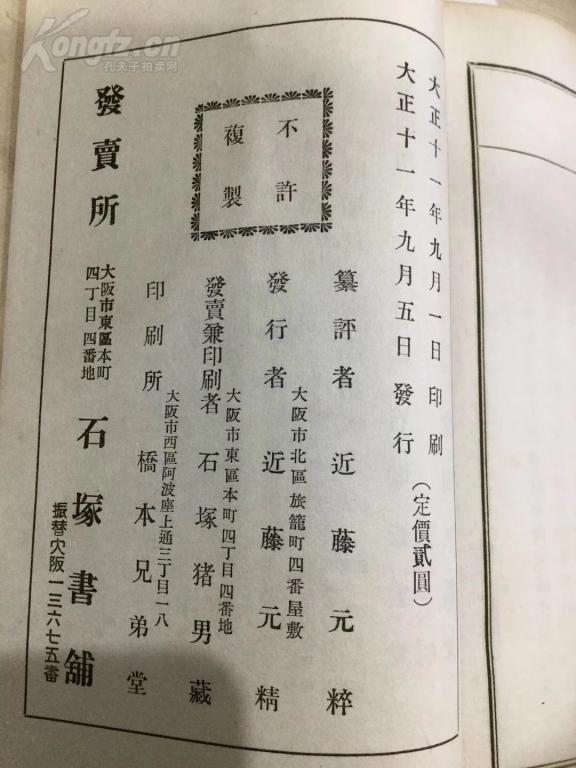 大正十一年九月一日印刷
大正十一年九月五日發行
(定價貳圓)
不許
複製
纂評者近藤元粹
大阪市北區旅籠町四番屋敷
發行者近藤元精
大阪市東區本町四丁目四番地
發賣兼印刷者石塚猪男藏
大阪市西區阿波座上通三丁目一八
印刷所橋本兄弟堂
發賣所
大阪市東區本町
四丁目四番地
石塚書舖
振替大阪一三六七五番
Kongfz.cn
孔夫子拍卖网